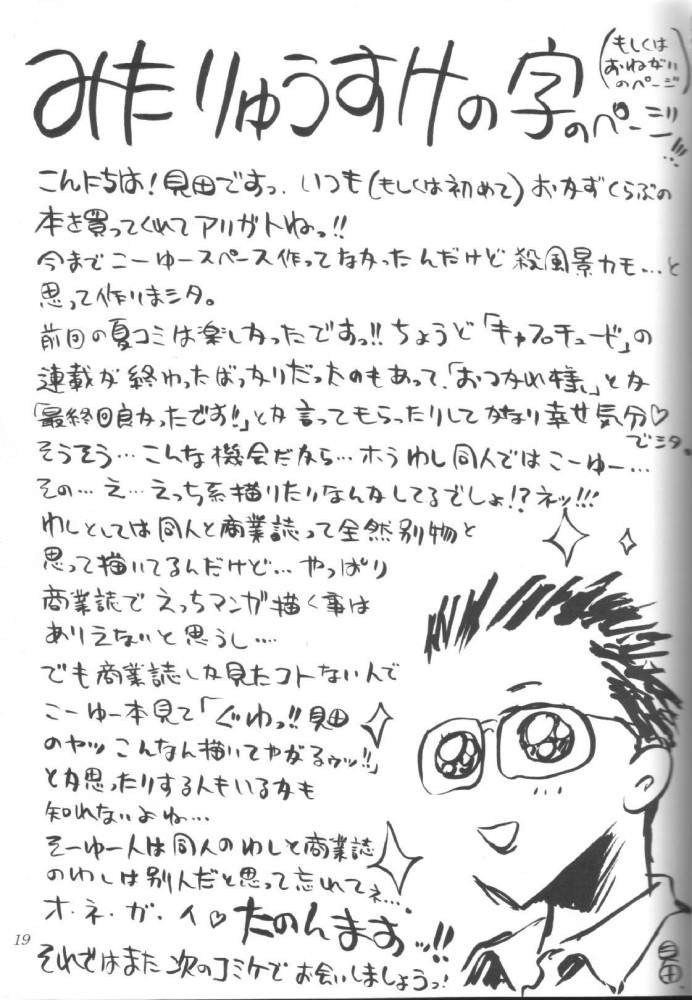 みたりゅうすけの字のページ!!!
(もしくは
おねがい
のページ)
こんにちは!見田ですっ.いつも(もしくは初めて)おかずくらぶの
本を買ってくれてアリガトねっ!!
今までこーゆースペース作ってなかったんだけど殺風景カモ…と
思って作りまシタ。
前回の夏コミは楽しかったですっ!!ちょうど「キャプロチュード」の
連載が終わったばっかりだったのもあって、「おつかれ様」とか
「最終回良かったです!」とか言ってもらったりしてかなり幸せ気分♡
でシタ。
そうそう…こんな機会だから…ホラわし同人ではこーゆー…
その…え…えっち系描いたりなんかしてるでしょ!?ネッ!!!
わしとしては同人と商業誌って全然別物と
思って描いてるんだけど…やっぱり
商業誌でえっちマンガ描く事は
ありえないと思うし…
でも商業誌しか見たコトない人で
こーゆー本見て「ぐわっ!!見田
のヤツこんなん描いてやがるゥッ!!」
とか思ったりする人もいるかも
知れないよね…
そーゆー人は同人のわしと商業誌
のわしは別人だと思って忘れてネ…
オ・ネ・ガ・イ♡たのんますっ!!
それではまた次のコミケでお会いしましょうっ!
見田
19